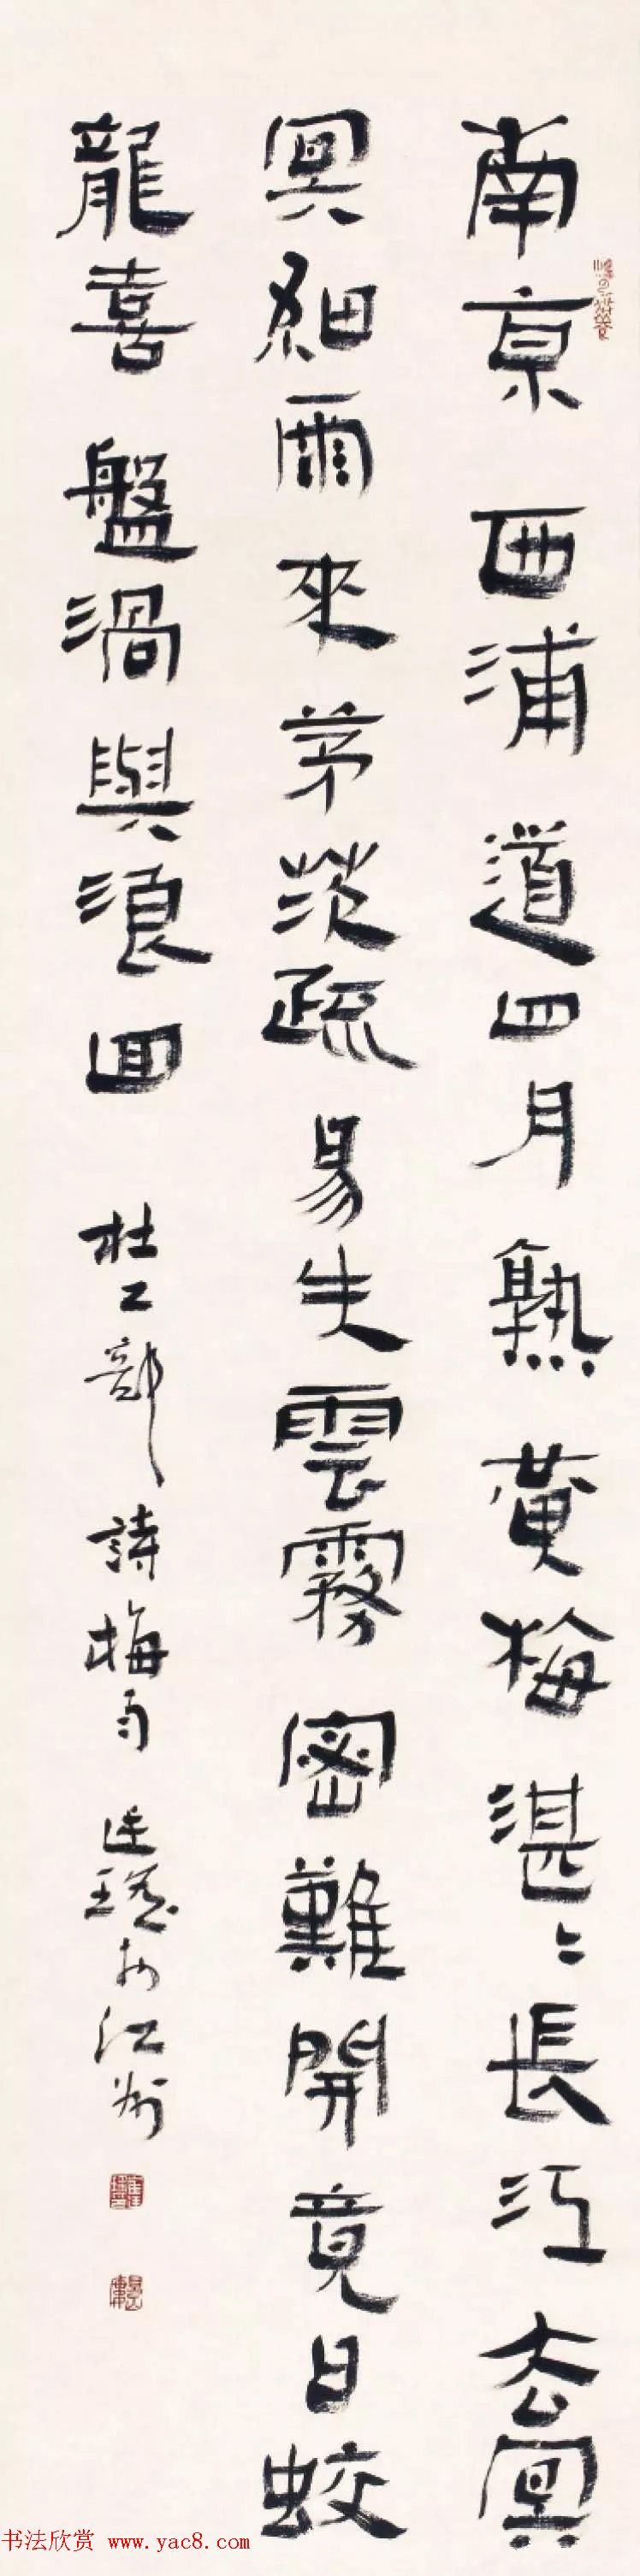 南京西浦道四月熟黃梅湛〻長江去冥
冥細雨來茅茨疏易失雲霧密難開竟日蛟
龍喜盤渦與浪回 杜工部詩梅雨 廷瑤於江州
书法欣赏 www.yac8.com